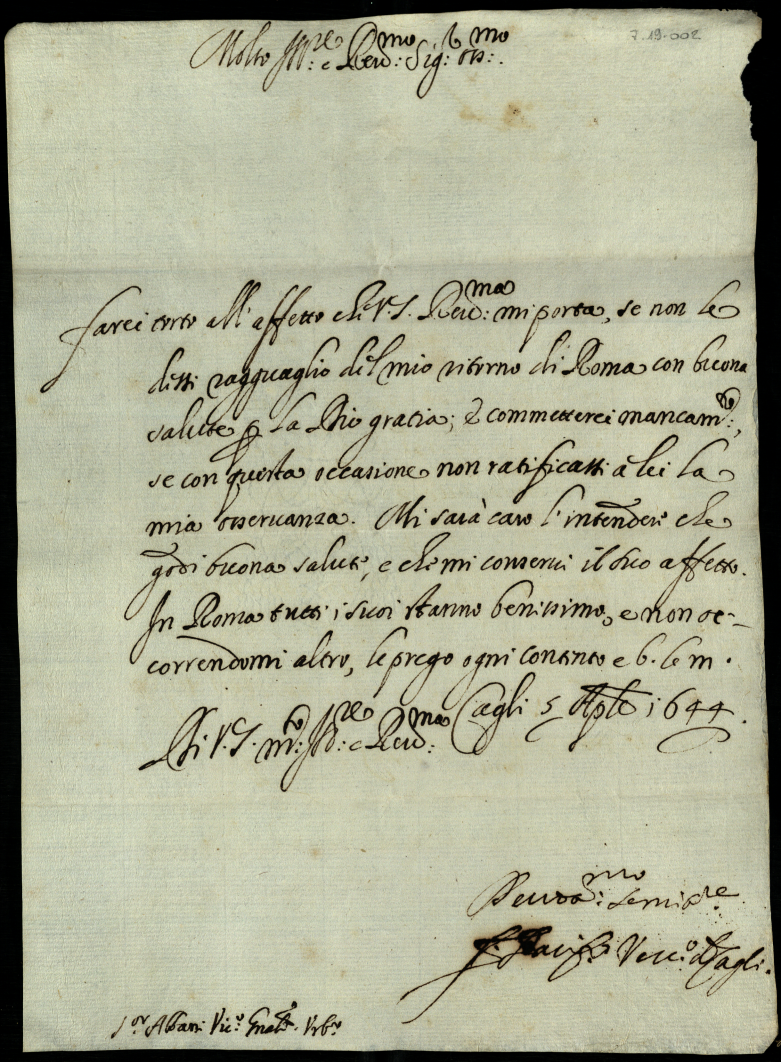 7.19.002
Molto Ill:re e Rev:mo Sig: Oss:mo
Farei torto all'affetto che V.S. Rev:ma mi porta, se non le
dessi ragguaglio del mio ritorno di Roma con buona
salute p la Dio gratia; & commetterei mancam:to,
se con questa occasione non ratificassi a lei la
mia osservanza. Mi sarà caro l'intendere che
godi buona salute, e che mi conservi il suo affetto.
In Roma tutti i suoi stanno benissimo, e non oc-
correndomi altro, le prego ogni contento e b. le m.
Di V.S. m:to Ill:re e Rev:ma Cagli 5 Aple 1644.
Devot:mo Servi:re
F. Pacif:o Vesc:o d Cagli.
S:or Albani Vic:o Gnale. Urb:o